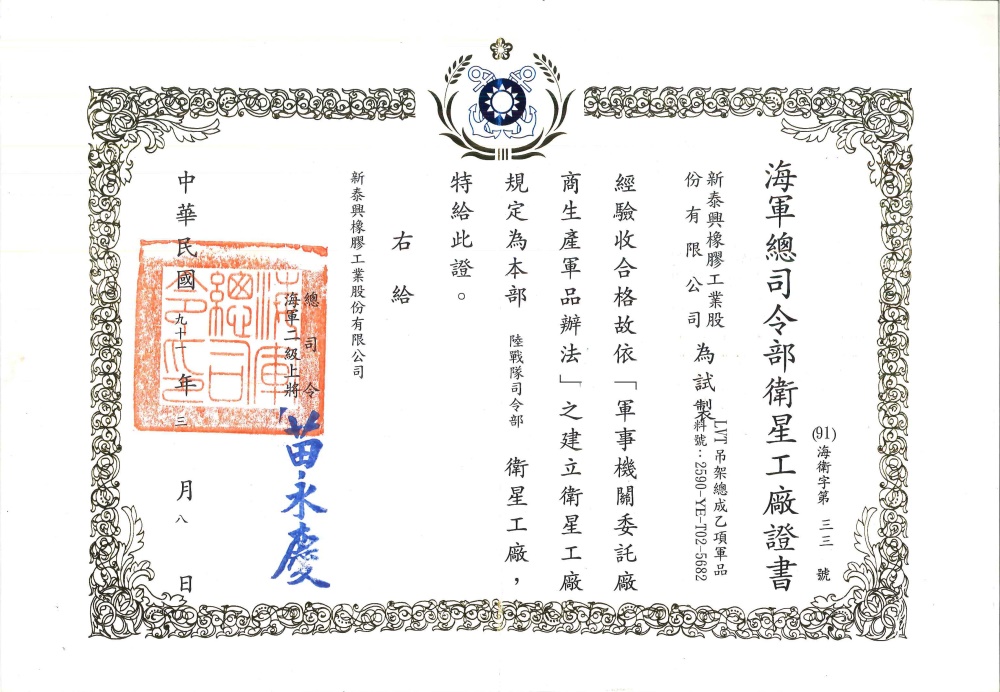 (91)海衛字第三三號
海軍總司令部衛星工廠證書
新泰興橡膠工業股
份有限公司
為試製
LVT吊架總成乙項軍品
料號：2590-YE-T02-5682
經驗收合格故依「軍事機關委託廠
商生產軍品辦法」之建立衛星工廠
規定為本部 陸戰隊司令部 衛星工廠，
特給此證。
右給
新泰興橡膠工業股份有限公司
總司令
海軍二級上將
苗永慶
海軍總司令印
中華民國九十一年三月八日